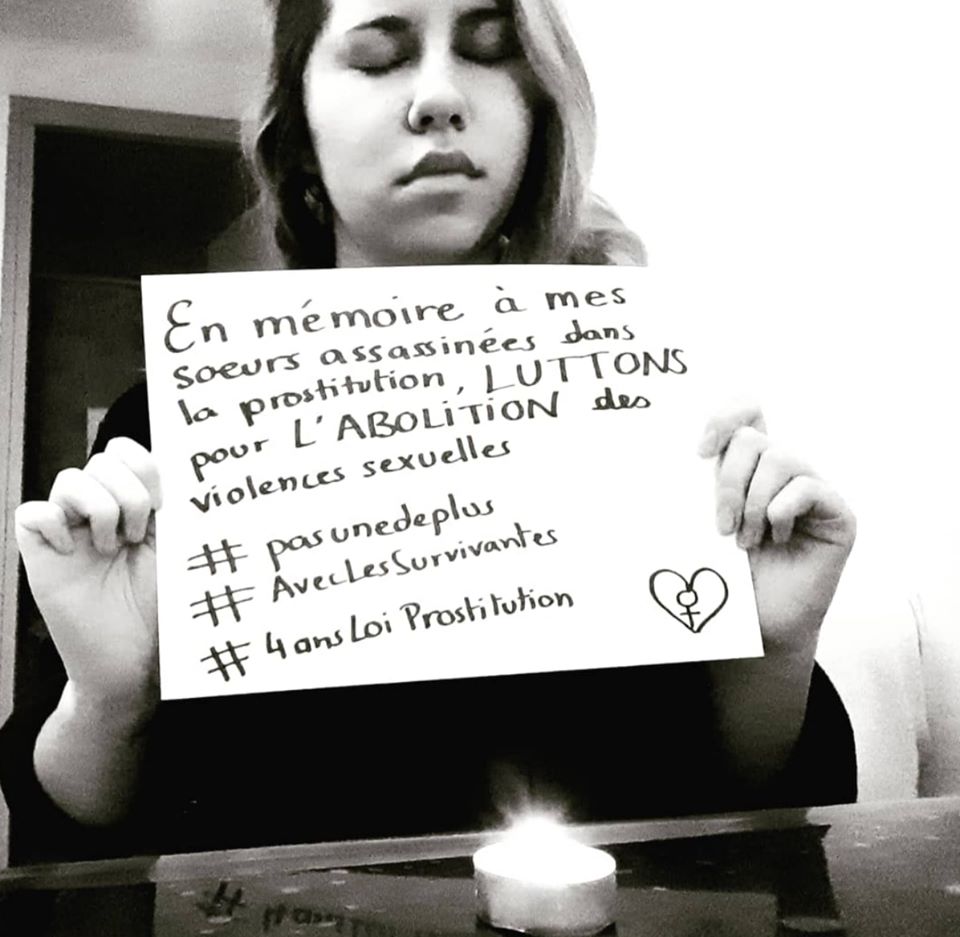 En mémoire à mes
soeurs assassinées dans
la prostitution, LUTTONS
pour L'ABOLITION des
violences sexuelles
# pasunedeplus
# AvecLesSurvivantes
# 4ansLoi Prostitution